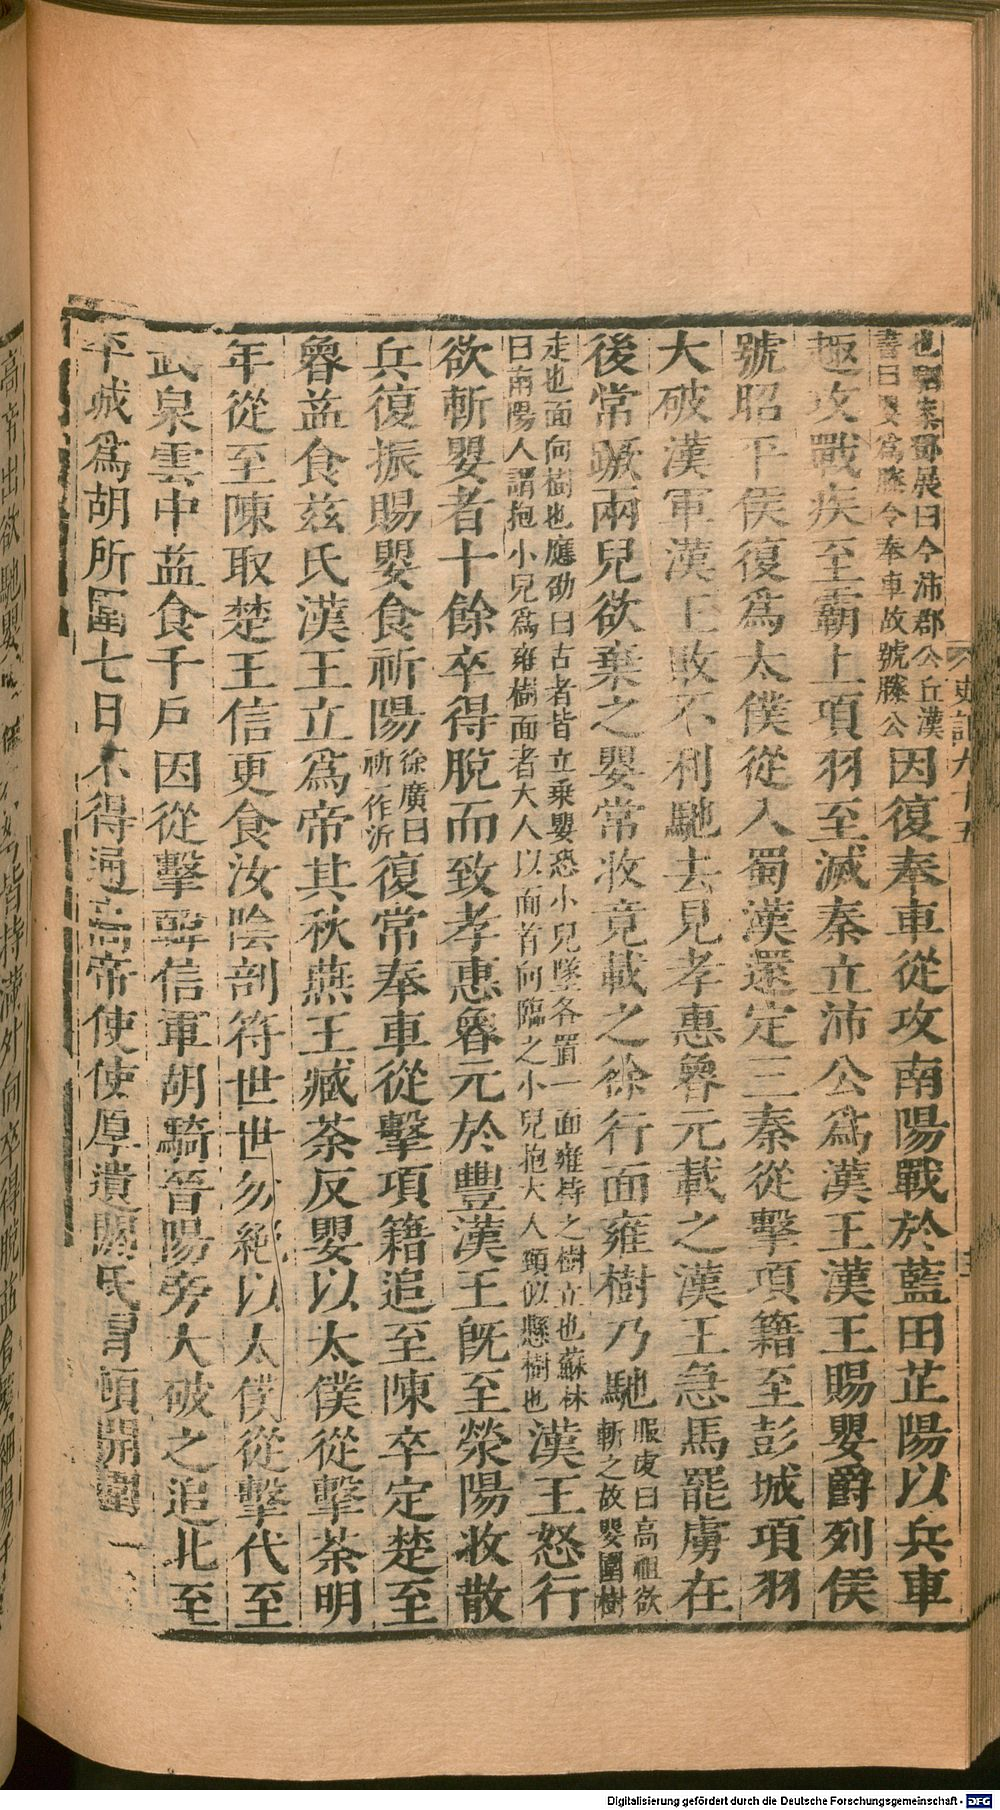 也駰案鄧展曰今沛郡公丘漢
書曰嬰爲滕令奉車故號滕公
因復奉車從攻南陽戰於藍田芷陽以兵車
趣攻戰疾至霸上項羽至滅秦立沛公爲漢王漢王賜嬰爵列侯
號昭平侯復爲太僕從入蜀漢還定三秦從擊項籍至彭城項羽
大破漢軍漢王敗不利馳去見孝惠魯元載之漢王急馬罷虜在
後常蹶兩兒欲棄之嬰常收竟載之徐行面雍樹乃馳
服虔曰高祖欲
斬之故嬰圍樹
走也面向樹也應劭曰古者皆立乘嬰恐小兒墜各置一面雍持之樹立也蘇林
曰南陽人謂抱小兒爲雍樹面者大人以面首向臨之小兒抱大人頸似懸樹也
漢王怒行
欲斬嬰者十餘卒得脫而致孝惠魯元於豐漢王旣至滎陽收散
兵復振賜嬰食祈陽
徐廣曰
祈一作沂
復常奉車從擊項籍追至陳卒定楚至
魯益食茲氏漢王立爲帝其秋燕王臧荼反嬰以太僕從擊荼明
年從至陳取楚王信更食汝陰剖符世世勿絕以太僕從擊代至
武泉雲中益食千戶因從擊韓信軍胡騎晉陽旁大破之追北至
平城爲胡所圍七日不得通高帝使使厚遺閼氏冒頓開圍一
史記九十五
高帝出欲馳嬰
皆持滿外向卒得脫益食嬰細陽千
Digitalisierung gefördert durch die Deutsche Forschungsgemeinschaft - DFG